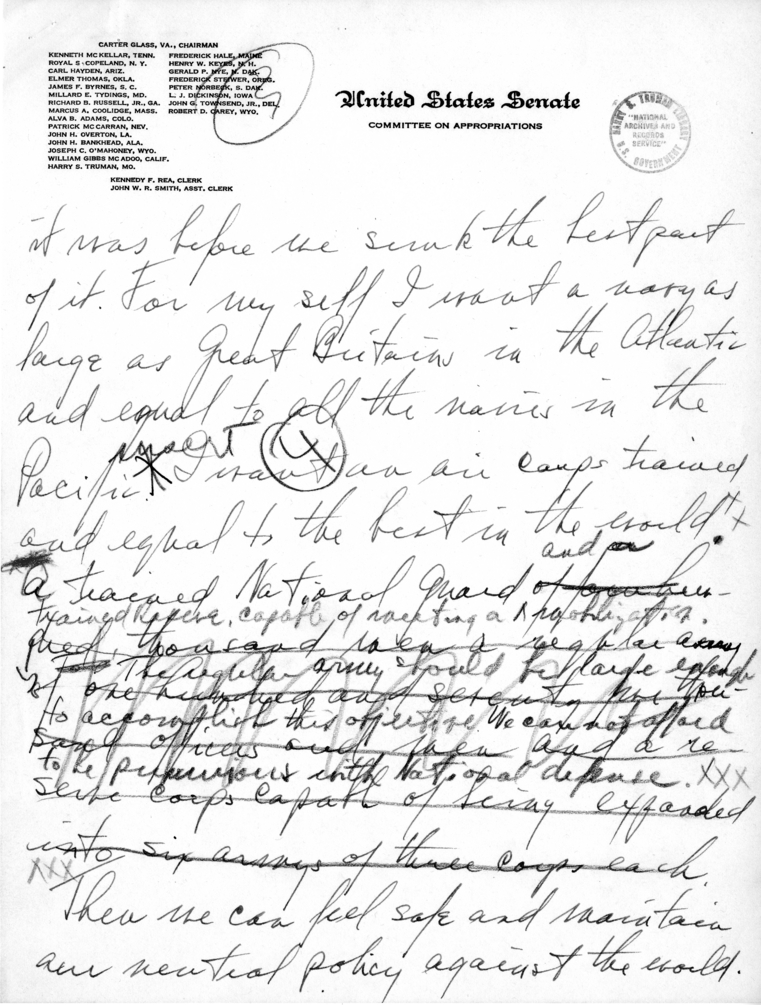 CARTER GLASS, VA., CHAIRMAN
KENNETH McKELLAR, TENN.
ROYAL S. COPELAND, N. Y.
CARL HAYDEN, ARIZ.
ELMER THOMAS, OKLA.
JAMES F. BYRNES, S. C.
MILLARD E. TYDINGS, MD.
RICHARD B. RUSSELL, JR., GA.
MARCUS A. COOLIDGE, MASS.
ALVA B. ADAMS, COLO.
PATRICK McCARRAN, NEV.
JOHN H. OVERTON, LA.
JOHN H. BANKHEAD, ALA.
JOSEPH C. O'MAHONEY, WYO.
WILLIAM GIBBS McADOO, CALIF.
HARRY S. TRUMAN, MO.
FREDERICK HALE, MAINE
HENRY W. KEYES, N. H.
GERALD P. NYE, N. DAK.
FREDERICK STEIWER, OREG.
PETER NORBECK, S. DAK.
L. J. DICKINSON, IOWA
JOHN G. TOWNSEND, JR., DEL.
ROBERT D. CAREY, WYO.
KENNEDY F. REA, CLERK
JOHN W. R. SMITH, ASST. CLERK
United States Senate
COMMITTEE ON APPROPRIATIONS
HARRY S. TRUMAN LIBRARY
"NATIONAL
ARCHIVES AND
RECORDS
SERVICE"
U.S. GOVERNMENT
it was before we sunk the best part
of it. For my self I want a navy as
large as Great Britains in the Atlantic
and equal to all the navies in the
insert
Pacific. I want an air corps trained
and equal to the best in the world. ++
and a
A trained National Guard of four hun-
trained Reserve, capable of meeting a
dred thousand men a regular army
The regular army should be large enough
of one hundred and seventy thou-
to accomplish this objective We can not afford
sand officers and men and a re-
to be penurious with National defense. XXX
serve corps capable of being expanded
into six armys of three corps each.
XXX
Then we can feel safe and maintain
our neutral policy against the world.